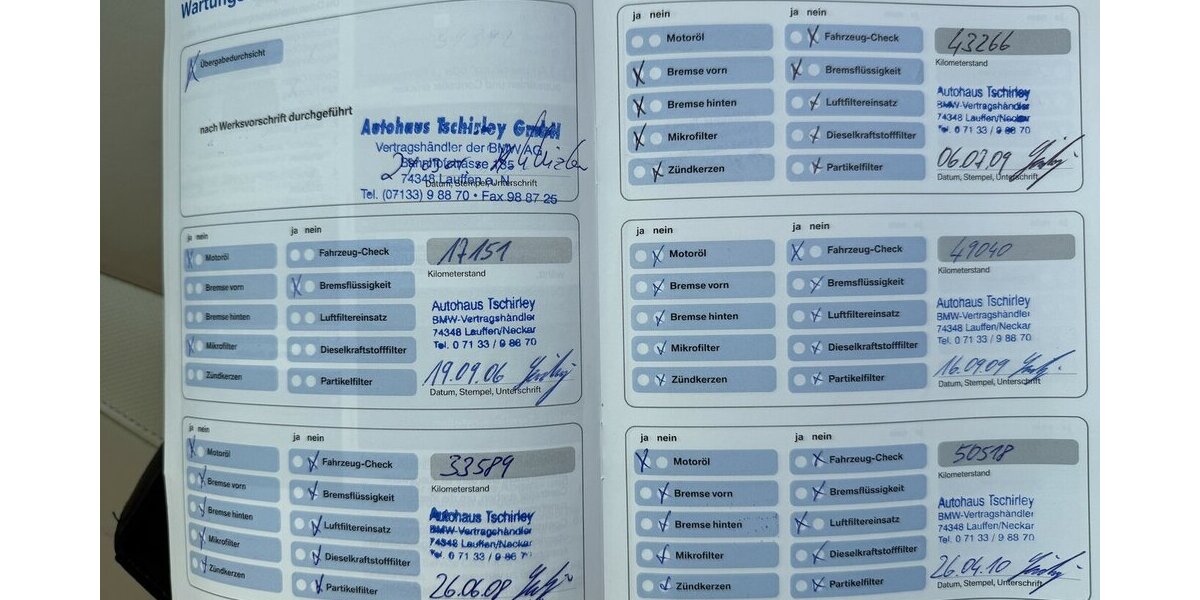 Übergabedurchsicht
nach Werksvorschrift durchgeführt
Autohaus Tschirley GmbH
Vertragshändler der BMW AG
74348 Lauffen a. N.
Datum, Stempel, Unterschrift
Tel. (07133) 9 88 70 • Fax 98 87 25
ja nein
ja nein
Motoröl
Fahrzeug-Check
17151
Bremse vorn
Bremsflüssigkeit
Kilometerstand
Bremse hinten
Luftfiltereinsatz
Autohaus Tschirley
BMW-Vertragshändler
74348 Lauffen/Neckar
Tel. 0 71 33 / 9 88 70
Mikrofilter
Dieselkraftstofffilter
Zündkerzen
Partikelfilter
19.09.06
Datum, Stempel, Unterschrift
ja nein
ja nein
Motoröl
Fahrzeug-Check
33589
Bremse vorn
Bremsflüssigkeit
Kilometerstand
Bremse hinten
Luftfiltereinsatz
Autohaus Tschirley
BMW-Vertragshändler
74348 Lauffen/Neckar
Tel. 0 71 33 / 9 88 70
Mikrofilter
Dieselkraftstofffilter
Zündkerzen
Partikelfilter
26.06.08
ja nein
ja nein
Motoröl
Fahrzeug-Check
43266
Bremse vorn
Bremsflüssigkeit
Kilometerstand
Bremse hinten
Luftfiltereinsatz
Autohaus Tschirley
BMW-Vertragshändler
74348 Lauffen/Neckar
Tel. 0 71 33 / 9 88 70
Mikrofilter
Dieselkraftstofffilter
Zündkerzen
Partikelfilter
06.07.09
Datum, Stempel, Unterschrift
ja nein
ja nein
Motoröl
Fahrzeug-Check
49040
Bremse vorn
Bremsflüssigkeit
Kilometerstand
Bremse hinten
Luftfiltereinsatz
Autohaus Tschirley
BMW-Vertragshändler
74348 Lauffen/Neckar
Tel. 0 71 33 / 9 88 70
Mikrofilter
Dieselkraftstofffilter
Zündkerzen
Partikelfilter
16.09.09
Datum, Stempel, Unterschrift
ja nein
ja nein
Motoröl
Fahrzeug-Check
50518
Bremse vorn
Bremsflüssigkeit
Kilometerstand
Bremse hinten
Luftfiltereinsatz
Autohaus Tschirley
BMW-Vertragshändler
74348 Lauffen/Neckar
Tel. 0 71 33 / 9 88 70
Mikrofilter
Dieselkraftstofffilter
Zündkerzen
Partikelfilter
26.04.10
Datum, Stempel, Unterschrift